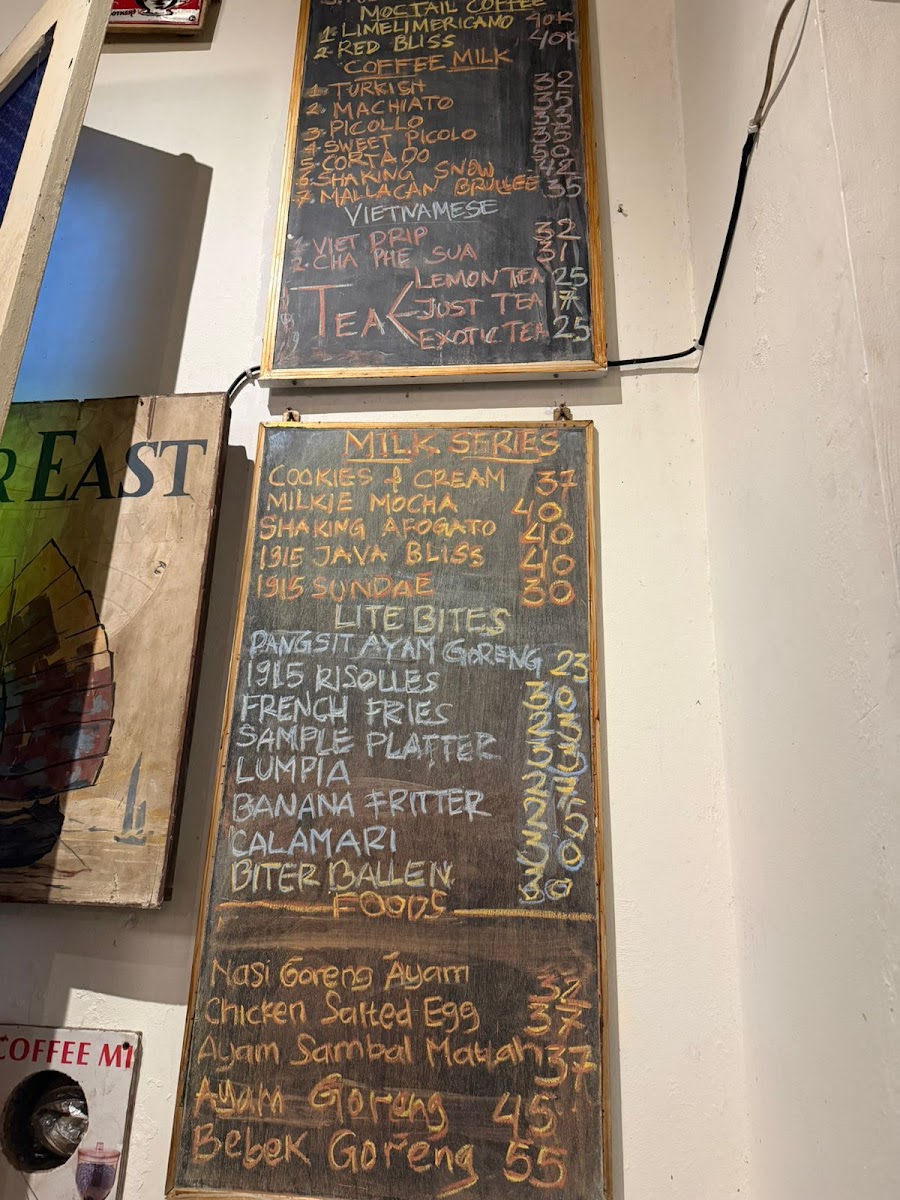 MOCTAIL COFFEE
1. LIMELIMERICANO 40K
2. RED BLISS 40K
COFFEE MILK
1. TURKISH 32
2. MACHIATO 35
3. PICOLLO 33
4. SWEET PICOLO 35
5. CORTADO 50
6. SHAKING SNOW 42
7. MALLACAN BRULLEE 35
VIETNAMESE
1. VIET DRIP 32
2. CHA PHE SUA 31
TEA
LEMON TEA 25
JUST TEA 17
EXOTIC TEA 25
EAST
MILK SERIES
COOKIES & CREAM 37
MILKIE MOCHA 40
SHAKING AFOGATO 40
1915 JAVA BLISS 40
1915 SUNDAE 30
LITE BITES
PANGSIT AYAM GORENG 23
1915 RISOLLES 30
FRENCH FRIES 23
SAMPLE PLATTER 33
LUMPIA 27
BANANA FRITTER 25
CALAMARI 30
BITER BALLEN 30
FOODS
Nasi Goreng Ayam 32
Chicken Salted Egg 37
Ayam Sambal Matah 37
Ayam Goreng 45
Bebek Goreng 55
COFFEE MI